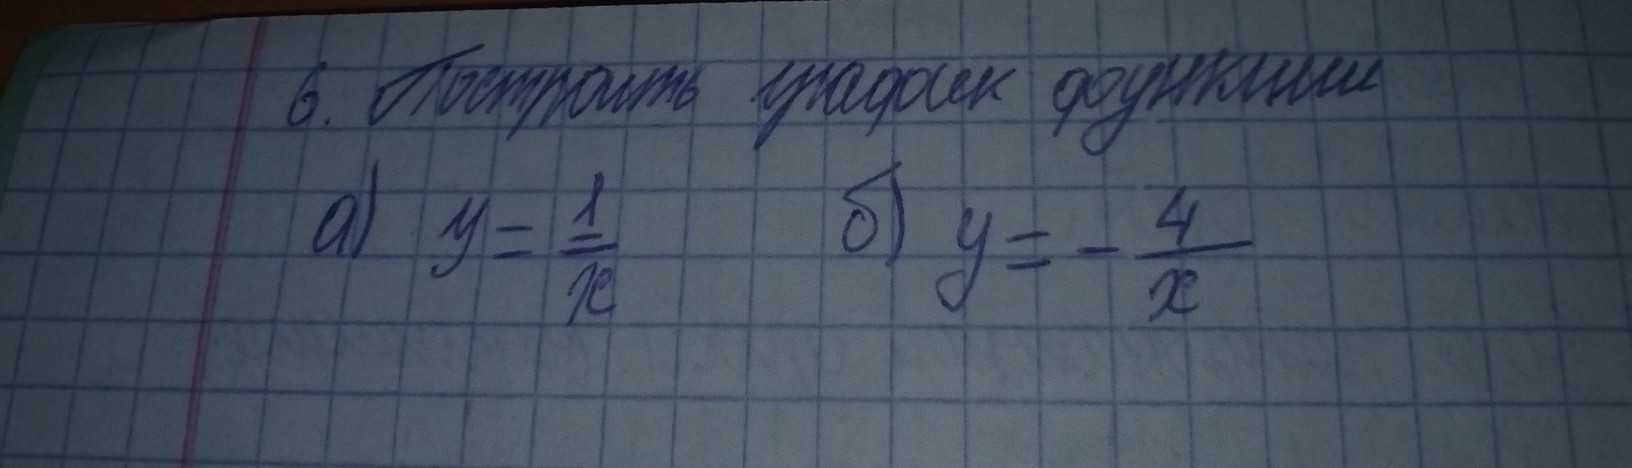 6. Построить график функции
а) y = 1/x б) y = - 4/x